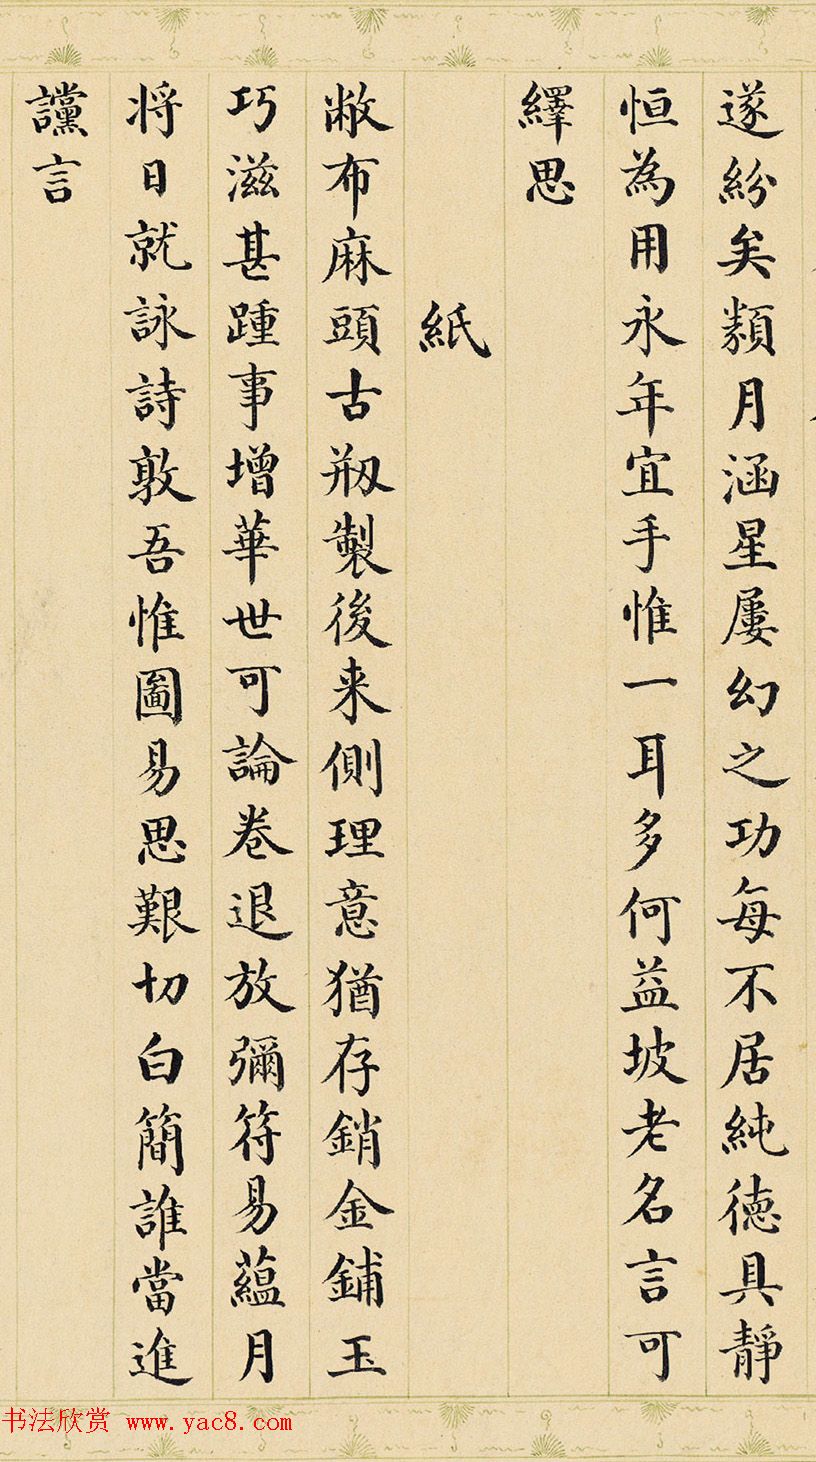 遂紛矣類月涵星屢幻之功每不居純德具靜
恒為用永年宜手惟一耳多何益坡老名言可
繹思
紙
敝布麻頭古剏製後来側理意猶存銷金鋪玉
巧滋甚踵事增華世可論卷退放彌符易蘊月
将日就詠詩敦吾惟圖易思艱切白簡誰當進
讜言
书法欣赏 www.yac8.com